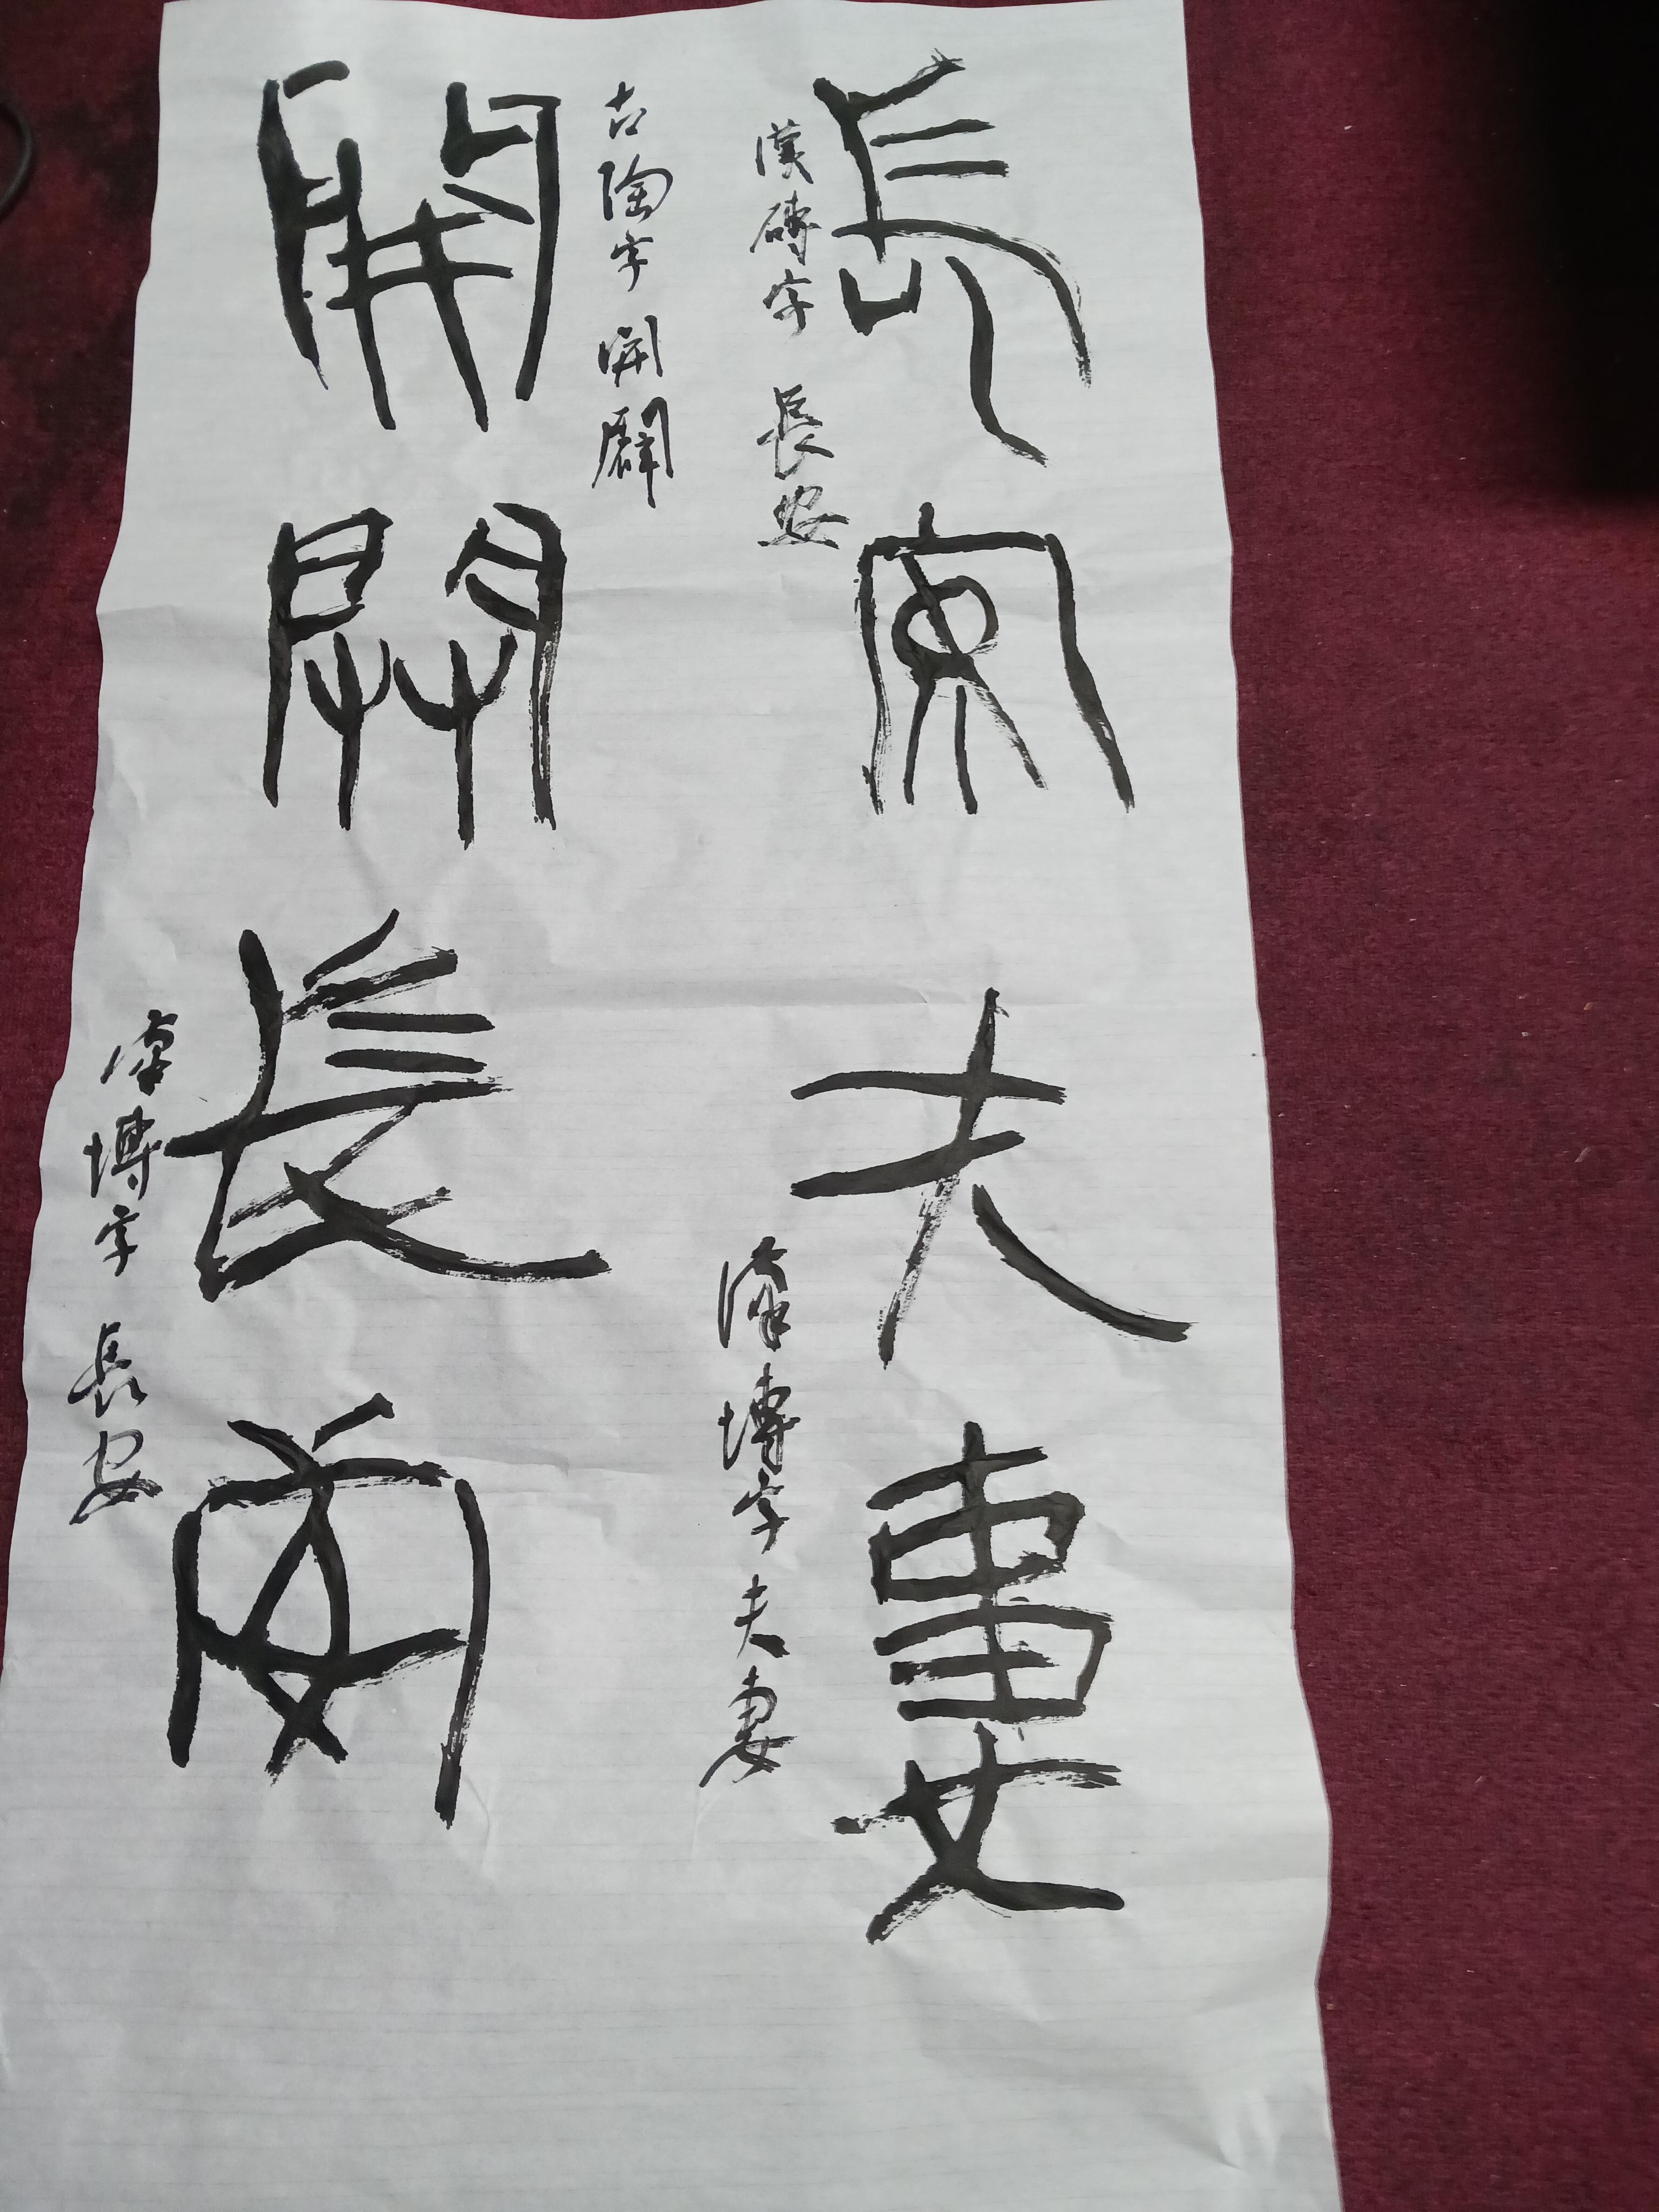 長安夫妻
漢磚字 長安
漢塼字 夫妻
開闢長安
古陶字 開闢
漢塼字 長安